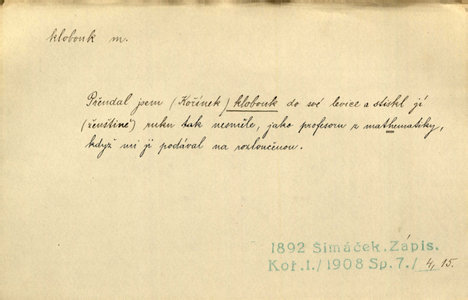 klobouk m.
Přendal jsem (Kořínek) klobouk do své levice a stiskl jí
(ženštině) ruku tak nesměle, jako profesoru z mathematiky,
když mi ji podával na rozloučenou.
1892 Šimáček. Zápis.
Koř. I./1908 Sp. 7./ 4, 15.